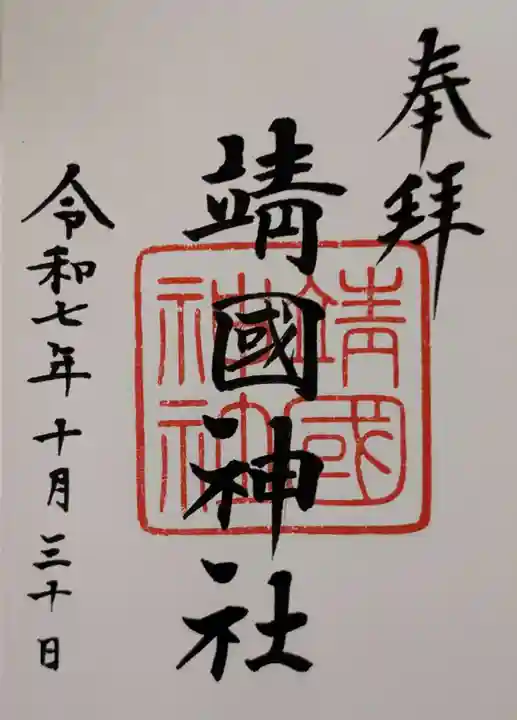 奉拝
靖國神社
靖國神社
令和七年十月三十日